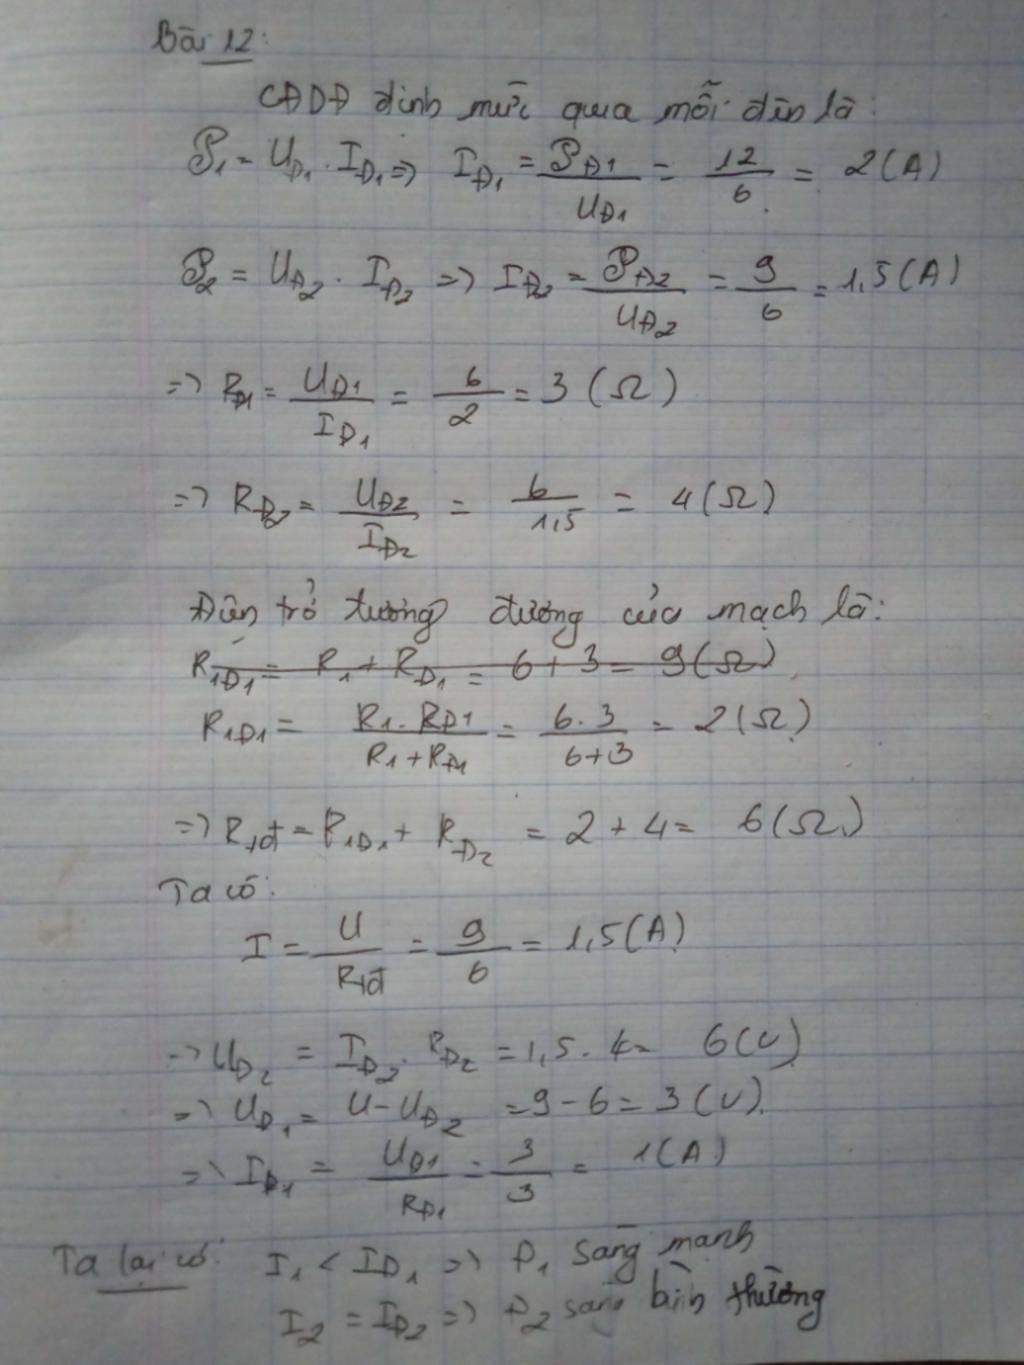 Bài 12:
CĐDĐ định mức qua mỗi đèn là:
𝒫1 = UĐ1 . IĐ1 => IĐ1 = 𝒫Đ1 / UĐ1 = 12 / 6 = 2 (A)
𝒫2 = UĐ2 . IĐ2 => IĐ2 = 𝒫Đ2 / UĐ2 = 9 / 6 = 1,5 (A)
=> RĐ1 = UĐ1 / IĐ1 = 6 / 2 = 3 (Ω)
=> RĐ2 = UĐ2 / IĐ2 = 6 / 1,5 = 4 (Ω)
Điện trở tương đương của mạch là:
R1Đ1 = R1 + RĐ1 = 6 + 3 = 9 (Ω)
R1Đ1 = R1 . RĐ1 / R1 + RĐ1 = 6 . 3 / 6 + 3 = 2 (Ω)
=> Rtđ = R1Đ1 + RĐ2 = 2 + 4 = 6 (Ω)
Ta có:
I = U / Rtđ = 9 / 6 = 1,5 (A)
=> UĐ2 = IĐ2 . RĐ2 = 1,5 . 4 = 6 (V)
=> UĐ1 = U - UĐ2 = 9 - 6 = 3 (V)
=> IĐ1 = UĐ1 / RĐ1 = 3 / 3 = 1 (A)
Ta lại có: I1 < IĐ1 => Đ1 sáng mạnh
I2 = IĐ2 => Đ2 sáng bình thường